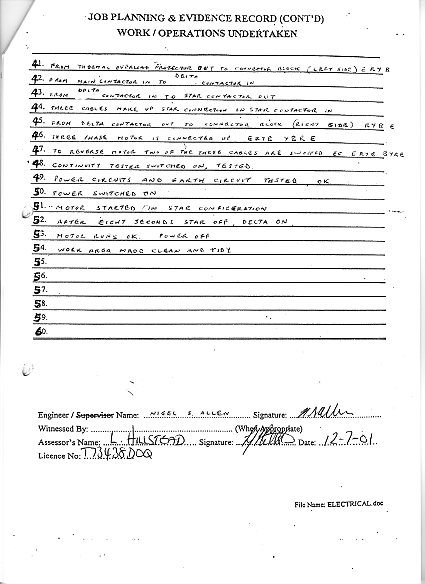 JOB PLANNING & EVIDENCE RECORD (CONT'D)
WORK / OPERATIONS UNDERTAKEN
41. FROM THERMAL OVERLOAD PROTECTOR OUT TO CONNECTOR BLOCK (LEFT SIDE) E R Y B
42. FROM MAIN CONTACTOR IN TO DELTA CONTACTOR IN
43. FROM DELTA CONTACTOR IN TO STAR CONTACTOR OUT
44. THREE CABLES MAKE UP STAR CONNECTION IN STAR CONTACTOR IN
45. FROM DELTA CONTACTOR OUT TO CONNECTOR BLOCK (RIGHT SIDE) R Y B E
46. THREE PHASE MOTOR IS CONNECTED UP ERYB YBRE
47. TO REVERSE MOTOR TWO OF THE THREE CABLES ARE SWOPED EG ERYB BYRE
48. CONTINUITY TESTER SWITCHED ON, TESTED
49. POWER CIRCUITS AND EARTH CIRCUIT TESTED, OK
50. POWER SWITCHED ON
51. MOTOR STARTED IN STAR CONFIGERATION
52. AFTER EIGHT SECONDS STAR OFF, DELTA ON
53. MOTOR RUNS OK. POWER OFF
54. WORK AREA MADE CLEAN AND TIDY
55.
56.
57.
58.
59.
60.
Engineer / Supervisor Name: NIGEL S ALLEN Signature: N S Allen
Witnessed By: (When Appropriate)
Assessor's Name: L. HILLSTEAD Signature: Date: 12-7-01
Licence No: T73438DOQ
File Name: ELECTRICAL.doc